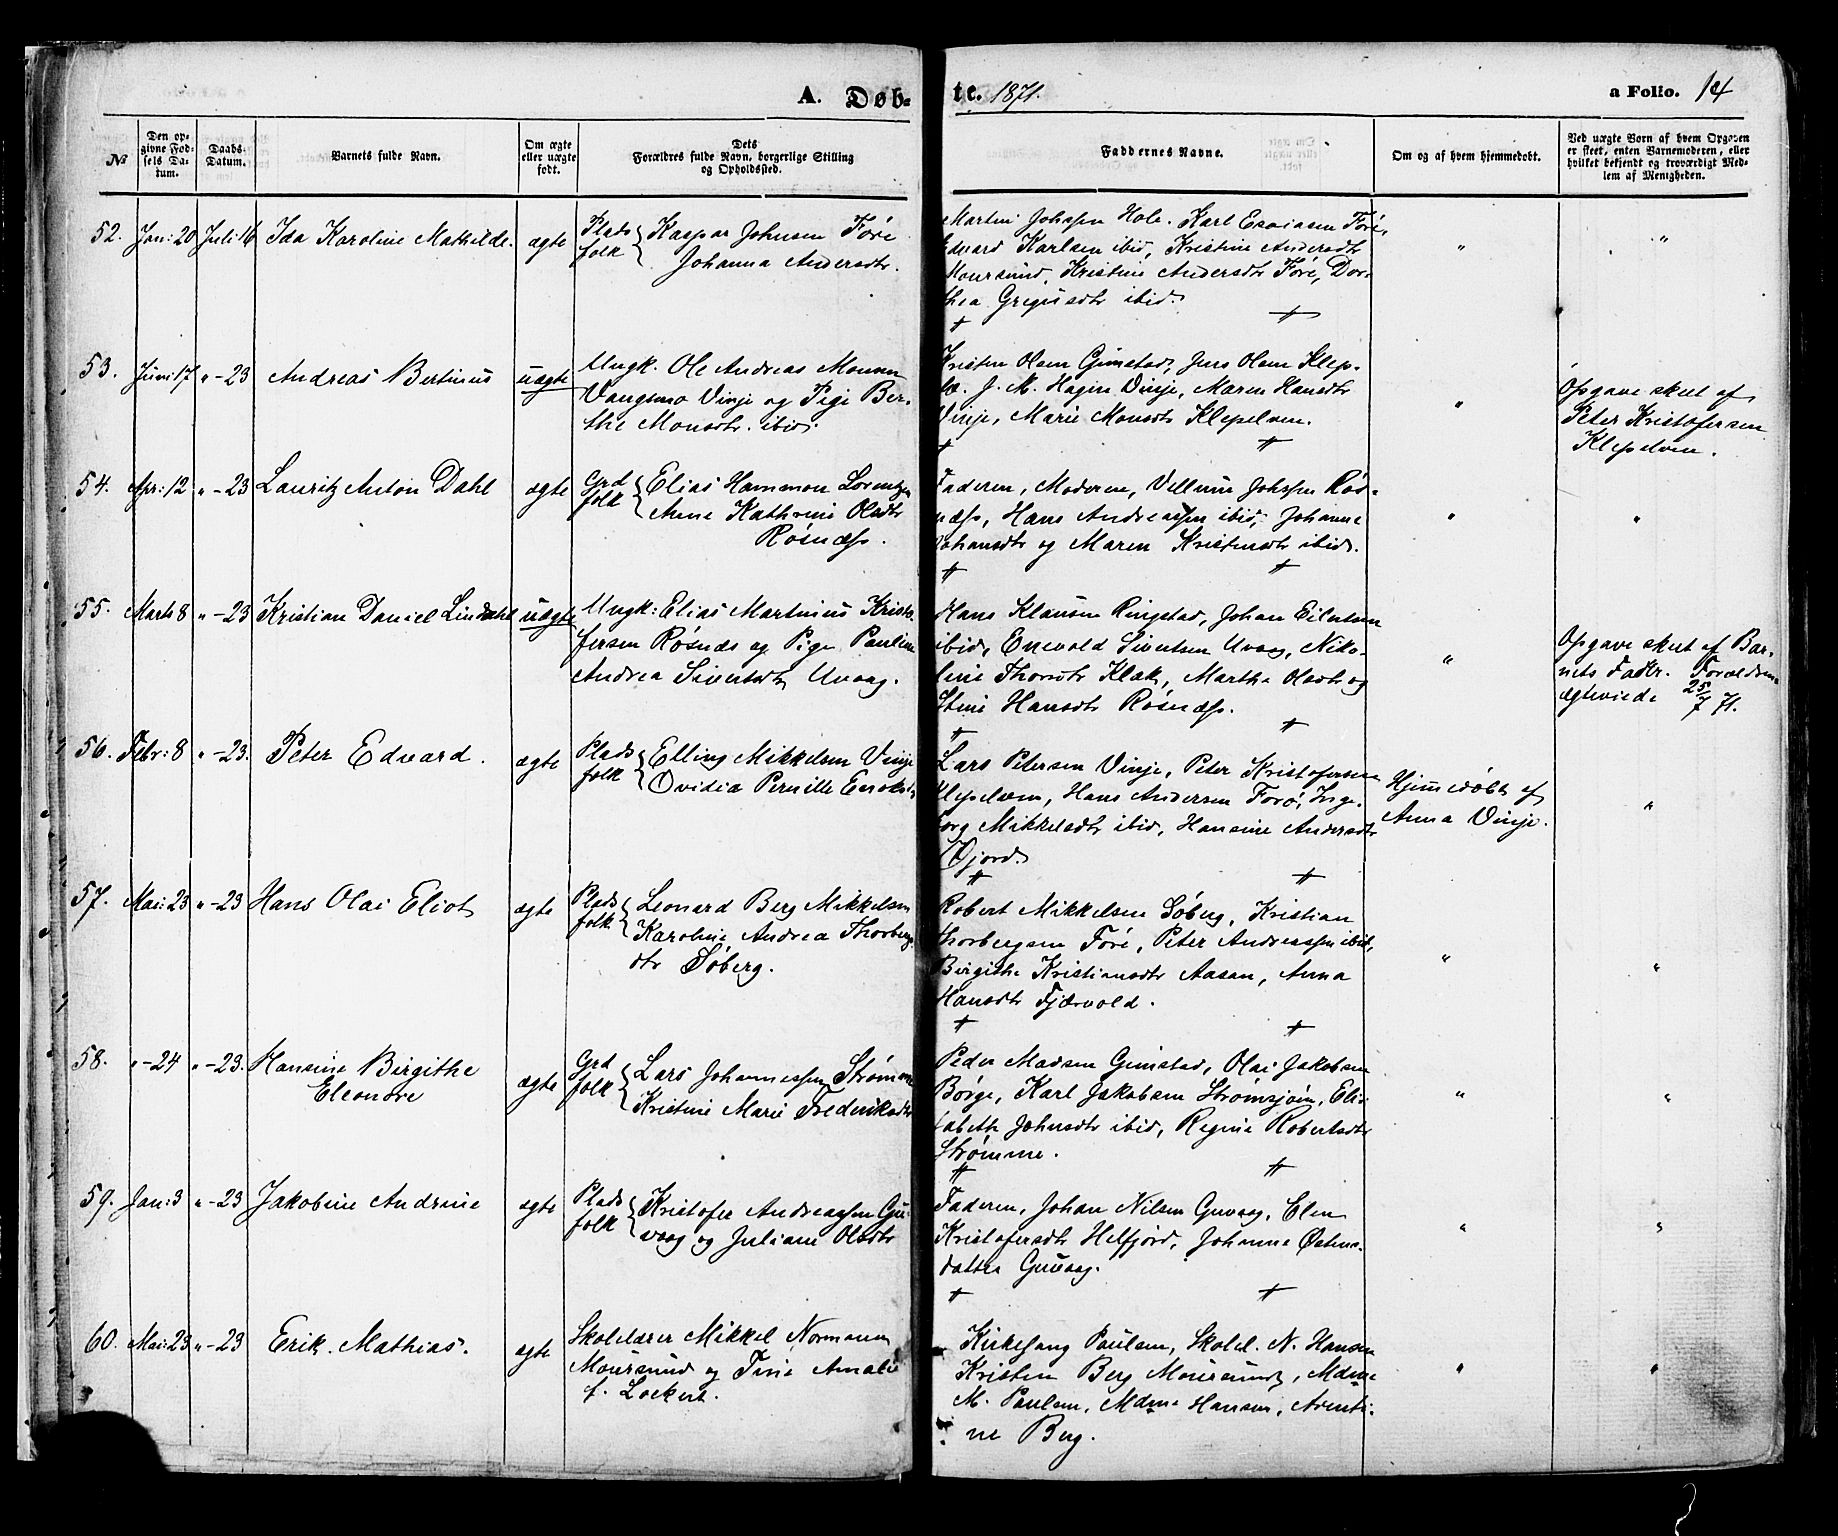 A. Døb-
te. 1871.
a Folio. 14
No
Den op-
givne Fød-
sels Da-
tum.
Daabs-
Datum.
Barnets fulde Navn.
Om ægte
eller uægte
født.
Dets
Forældres fulde Navn, borgerlige Stilling
og Opholdssted.
Faddernes Navne.
Om og af hvem hjemmedøbt.
Ved uægte Børn af hvem Opgaven
er skeet, enten Barnemoderen, eller
hvilket bekjendt og troværdigt Med-
lem af Menigheden.
52. Jan: 20 Juli 16 Ida Karoline Mathilde. ægte
Plads
folk
Kaspar Johnsen Føre
Johanna Andersdtr.
Martin Johssen Hole. Karl Esaiasen Føre,
Edvard Karlsen ibid, Kristine Andersdtr
Moursund, Kristine Andersdtr Føre, Dor-
thea Gregusdtr ibid.
"
"
53. Juni 17 " - 23 Andreas Bertinus uægte
Ungk. Ole Andreas Monsen
Vangsmo Vinje og Pige Ber-
the Monsdtr. ibid.
Kristen Olsen Gimstad, Jens Olsen Klep-
J. M. Hagen Vinje, Maren Hansdtr
Vinje, Marie Monsdtr Klepelven.
"
Opgave skeet af
Peter Kristofersen
Klepelven.
54. Apr: 12 " - 23 Lauritz Anton Dahl ægte
Grd
folk
Elias Hammon Lorentzen
Anne Kathrine Olsdtr
Røsnæss.
Faderen, Moderen, Villum Johssen Røs-
næss, Hans Andreassen ibid, Johanna
Johansdtr og Maren Kristensdtr ibid.
"
"
55. Marts 8 " - 23 Kristian Daniel Lindahl uægte
Ungk: Elias Martinus Kristo-
fersen Røsnæs og Pige Pauline
Andrea Sivertsdtr Uvaag.
Hans Klausen Ringstad, Johan Eilertsen
ibid, Enevold Sivertsen Uvaag, Niko-
line Thorsdtr Klak, Martha Olsdtr og
Stine Hansdtr Røsnæss.
"
Opgave skeet af Bar-
nets Fader. Forældrene
ægteviede 25/7 71.
56. Febr: 8 " - 23. Peter Edvard. ægte
Plads
folk
Elling Mikkelsen Vinje
Ovidia Pernille Enoksdtr
Lars Petersen Vinje, Peter Kristofersen
Klepelven, Hans Andersen Forø, Inge-
borg Mikkelsdtr ibid, Hansine Andersdtr
Gjord.
Hjemmedøbt af
Anna Vinje.
"
57. Mai: 23 " - 23 Hans Olai Eliot ægte
Plads
folk
Leonard Berg Mikkelsen
Karoline Andrea Thorbergs
dtr Søberg.
Robert Mikkelsen Søberg, Kristian
Thorbergsen Føre, Peter Andreassen ibid,
Birgithe Kristiansdtr Aasan, Anna
Hansdtr Fjærvold.
"
"
58. " - 24 " - 23. Hansine Birgithe
Eleonore
ægte
Grd
folk
Lars Johannessen Strømme
Kristine Marie Frederiksdtr
Peder Madsen Gimstad, Olai Jakobsen
Børge, Karl Jakobsen Strømsjøin, Eli-
sabeth Johnsdtr ibid, Regine Robertsdtr
Strømme.
"
"
59. Jan: 3 " - 23 Jakobine Andrine ægte
Plads
folk
Kristofer Andreassen Gu-
vaag og Juliane Olsdtr
Faderen, Johan Nilsen Guvaag, Elen
Kristofersdtr Helfjord, Johanne Østens-
datter Guvaag.
"
"
60. Mai: 23 " - 23 Erik Mathias. ægte
Skolelærer Mikkel Normann
Moursund og Tine Amalie
f. Lockert.
Kirkesang Paulsen, Skolel. N. Hansen
Kristen Berg Moursund, Mdme
M. Paulsen, Mdme Hansen, Arenti-
ne Berg.
"
"